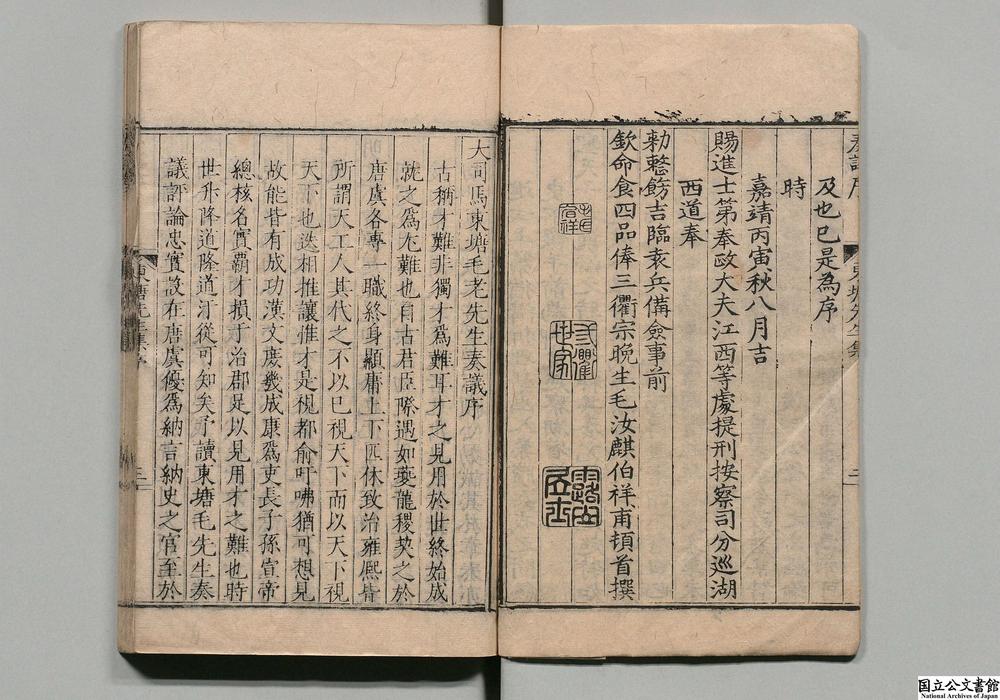 及也已是為序
時
嘉靖丙寅秋八月吉
賜進士第奉政大夫江西等處提刑按察司分巡湖
西道奉
勑整飭吉臨袁兵備僉事前
欽命食四品俸三衢宗晚生毛汝麒伯祥甫頓首撰
三衢世家
大司馬東塘毛老先生奏議序
古稱才難非獨才爲難耳才之見用於世終始成
就之爲尤難也自古君臣際遇如夔龍稷契之於
唐虞各專一職終身顯庸上下匹休致治雍熈皆
所謂天工人其代之不以已視天下而以天下視
天下也迭相推讓惟才是視都俞吁咈猶可想見
故能皆有成功漢文庶幾成康爲吏長子孫宣帝
總核名實覇才損于治郡足以見用才之難也時
世升降道隆道汙從可知矣予讀東塘毛先生奏
議評論忠實設在唐虞優爲納言納史之官至於
国立公文書館
National Archives of Japan